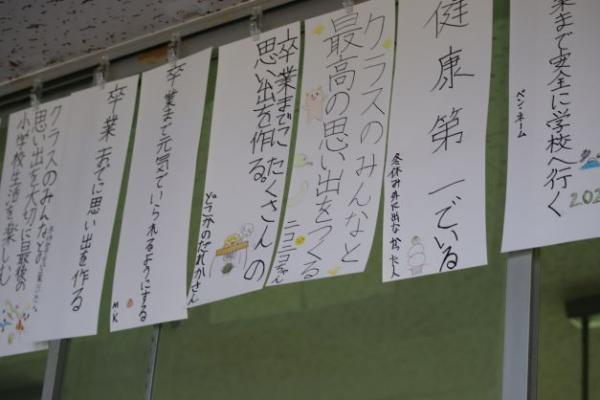 業まで安全に学校へ行く
ペンネーム
202
健康第一でいる
クラスのみんなと
最高の思い出をつくる
ニコニコちゃん
卒業までにたくさんの
思い出を作る。
どこかのだれかさん
卒業まで元気でいられるようにする
MK
卒業までに思い出を作る
クラスのみんなとの
思い出を大切に最後の
小学校生活を楽しむ